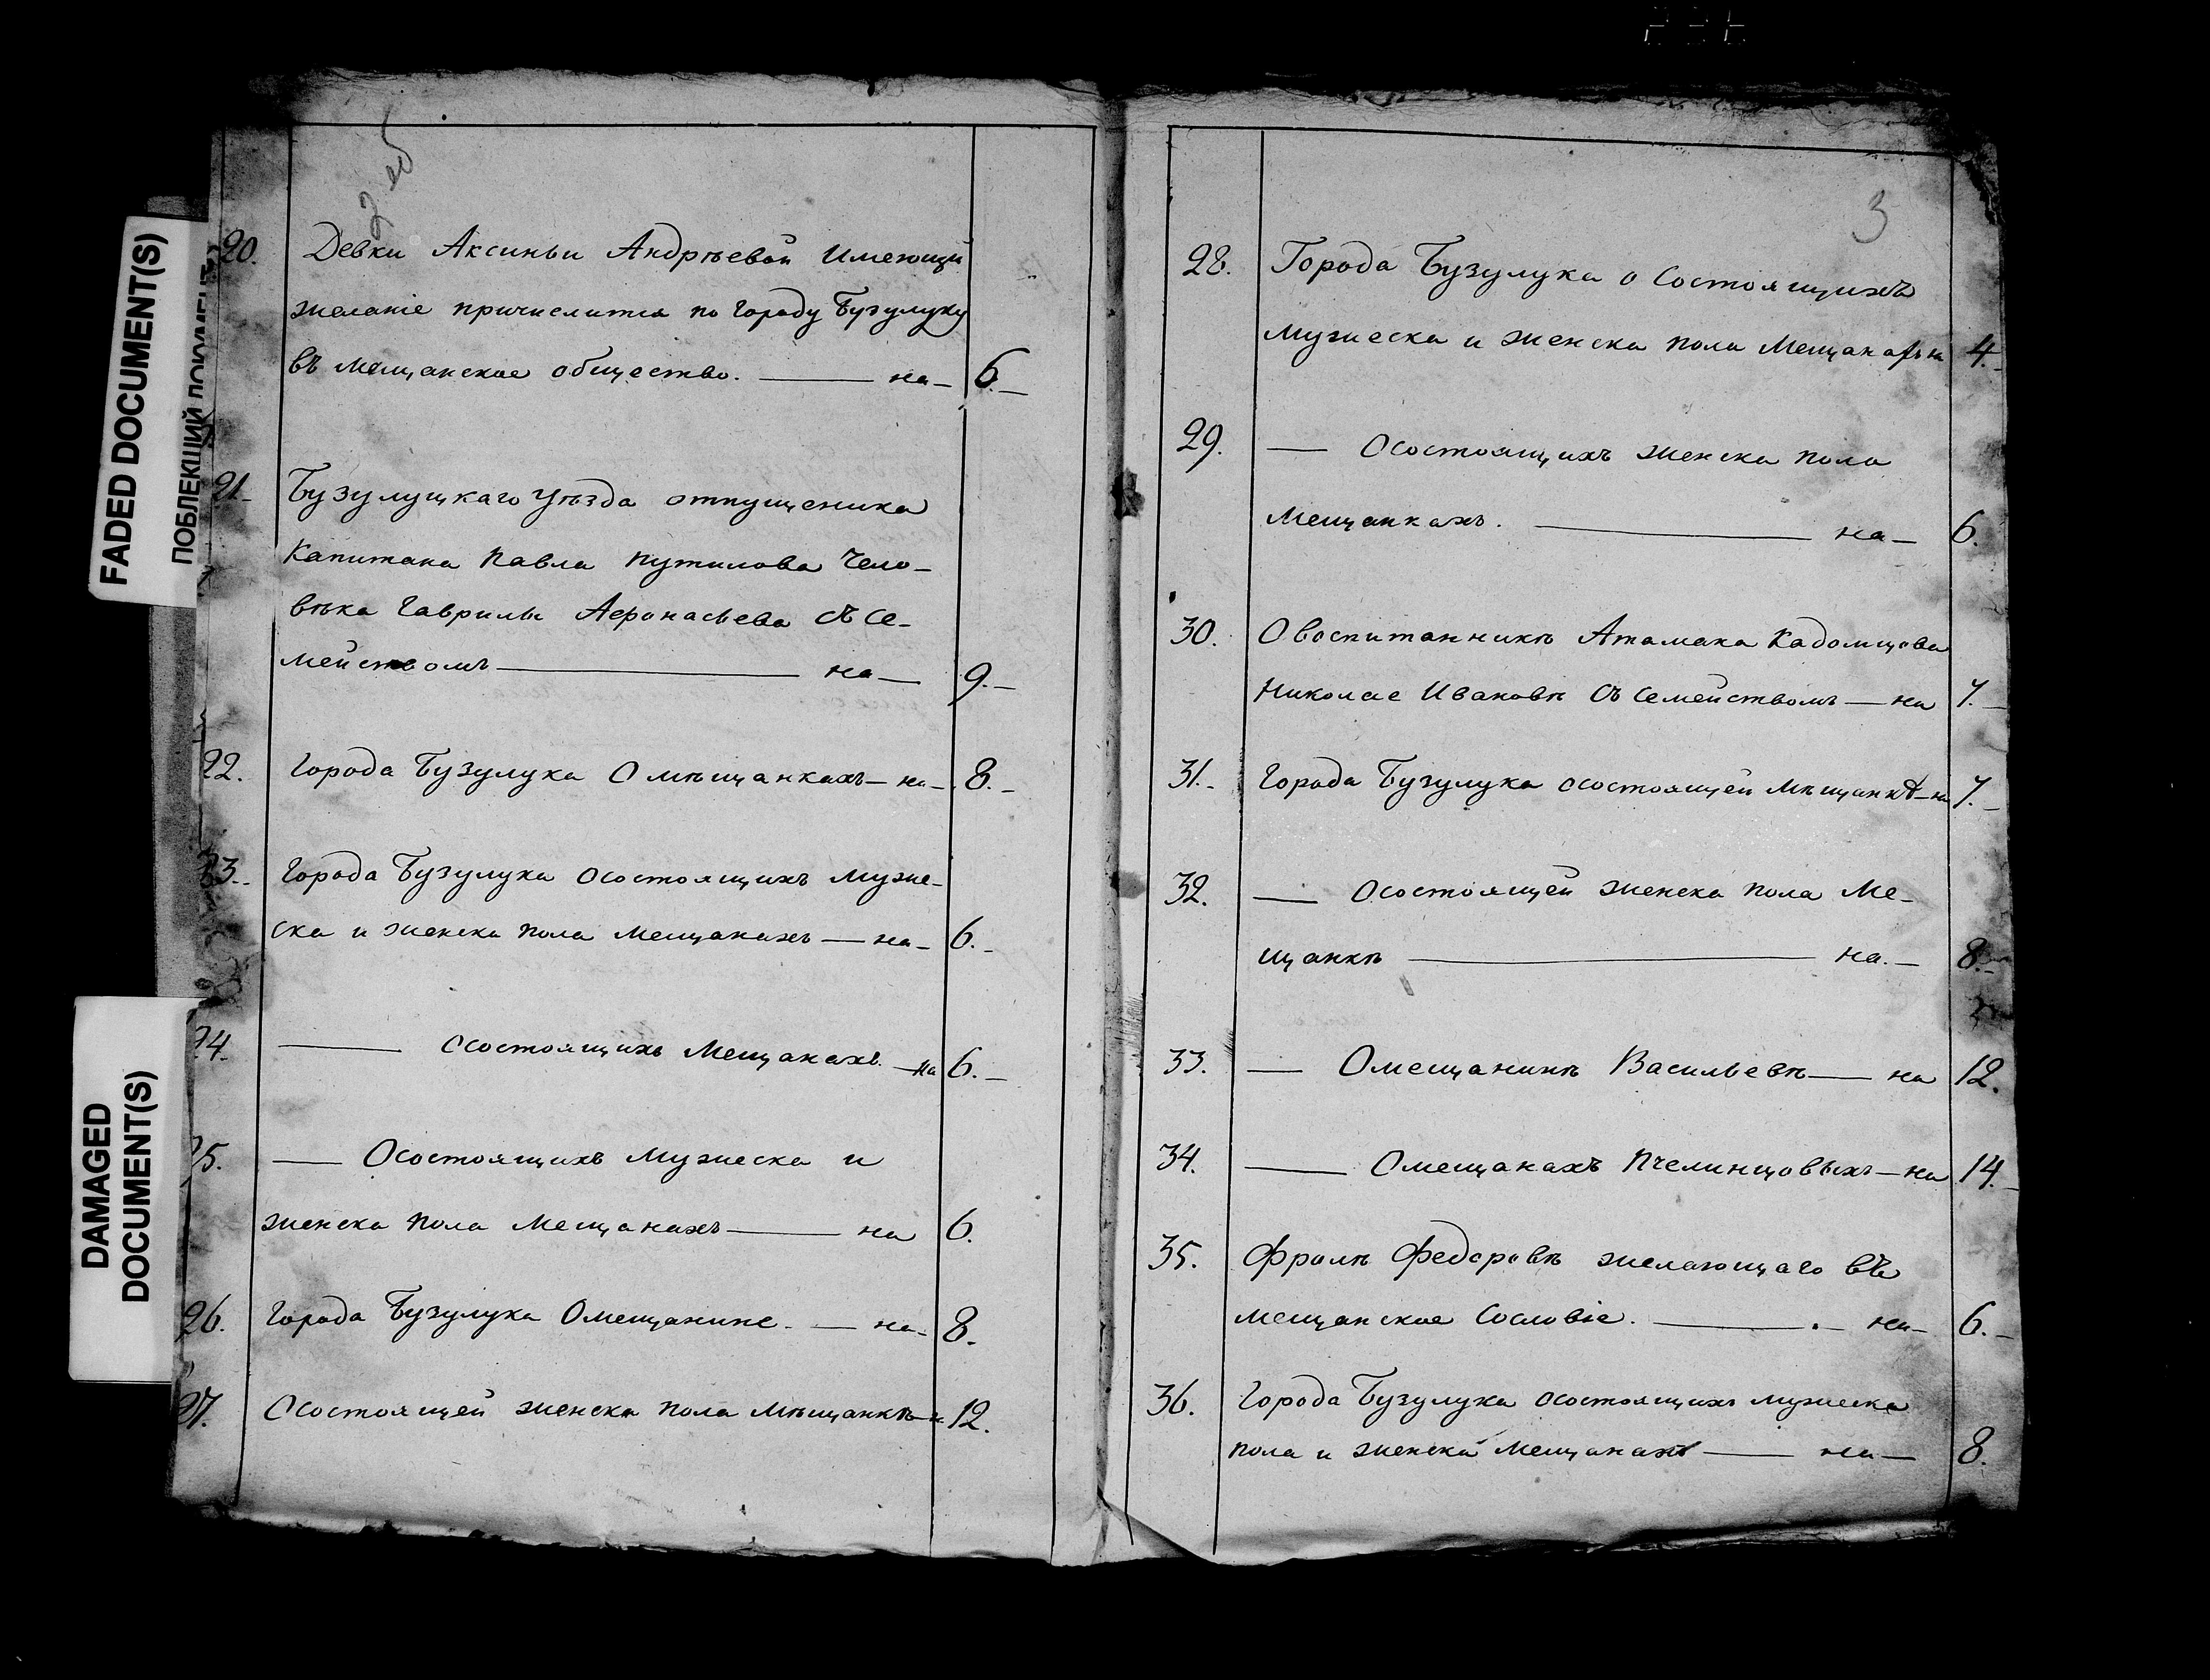 FADED DOCUMENT(S)
ПОБЛЕКШИЙ ДОКУМЕНТ
DAMAGED
DOCUMENT(S)
2 об
20. Девки Аксиньи Андрѣевой Имеющи
желаніе причислится по городу Бузулуку
въ мещанское общество. — на — 6. —
21. Бузулуцкаго Уѣзда отпущеника
Капитана Павла Путилова Чело-
вѣка Гаврилы Афонасьева съ Се-
мействомъ — на — 9. —
22. Города Бузулука О мѣщанкахъ — на — 8. —
23. Города Бузулука Осостоящихъ Муже-
ска и женска пола мещанахъ — на — 6. —
24. — Осостоящихъ Мещанахъ. — на 6. —
25. — Осостоящихъ Мужеска и
женска пола Мещанахъ — на 6.
26. Города Бузулука Омещанине. — на — 8.
27. Осостоящей женска пола Мѣщанкѣ — н 12.
3
28. Города Бузулука о Состоящихъ
Мужеска и женска пола Мещанахъ на 4. —
29. — Осостоящихъ женска пола
Мещанкахъ. — на — 6.
30. Овоспитанникѣ Атамана Кадомцова
Николае Ивановѣ Съ Семействомъ — на 7. —
31. Города Бузулука осостоящей Мѣщанкѣ — на 7. —
32. — Осостоящей женска пола Ме-
щанкѣ — на. — 8. —
33. — Омещанинѣ Васильевѣ — на 12.
34. — Омещанахъ Пчелинцовыхъ — на 14. —
35. Фролѣ Федоровѣ желающаго въ
мещанское Сословіе. — на — 6. —
36. Города Бузулука осостоящихъ мужеска
пола и женска мещанахъ — на — 8.